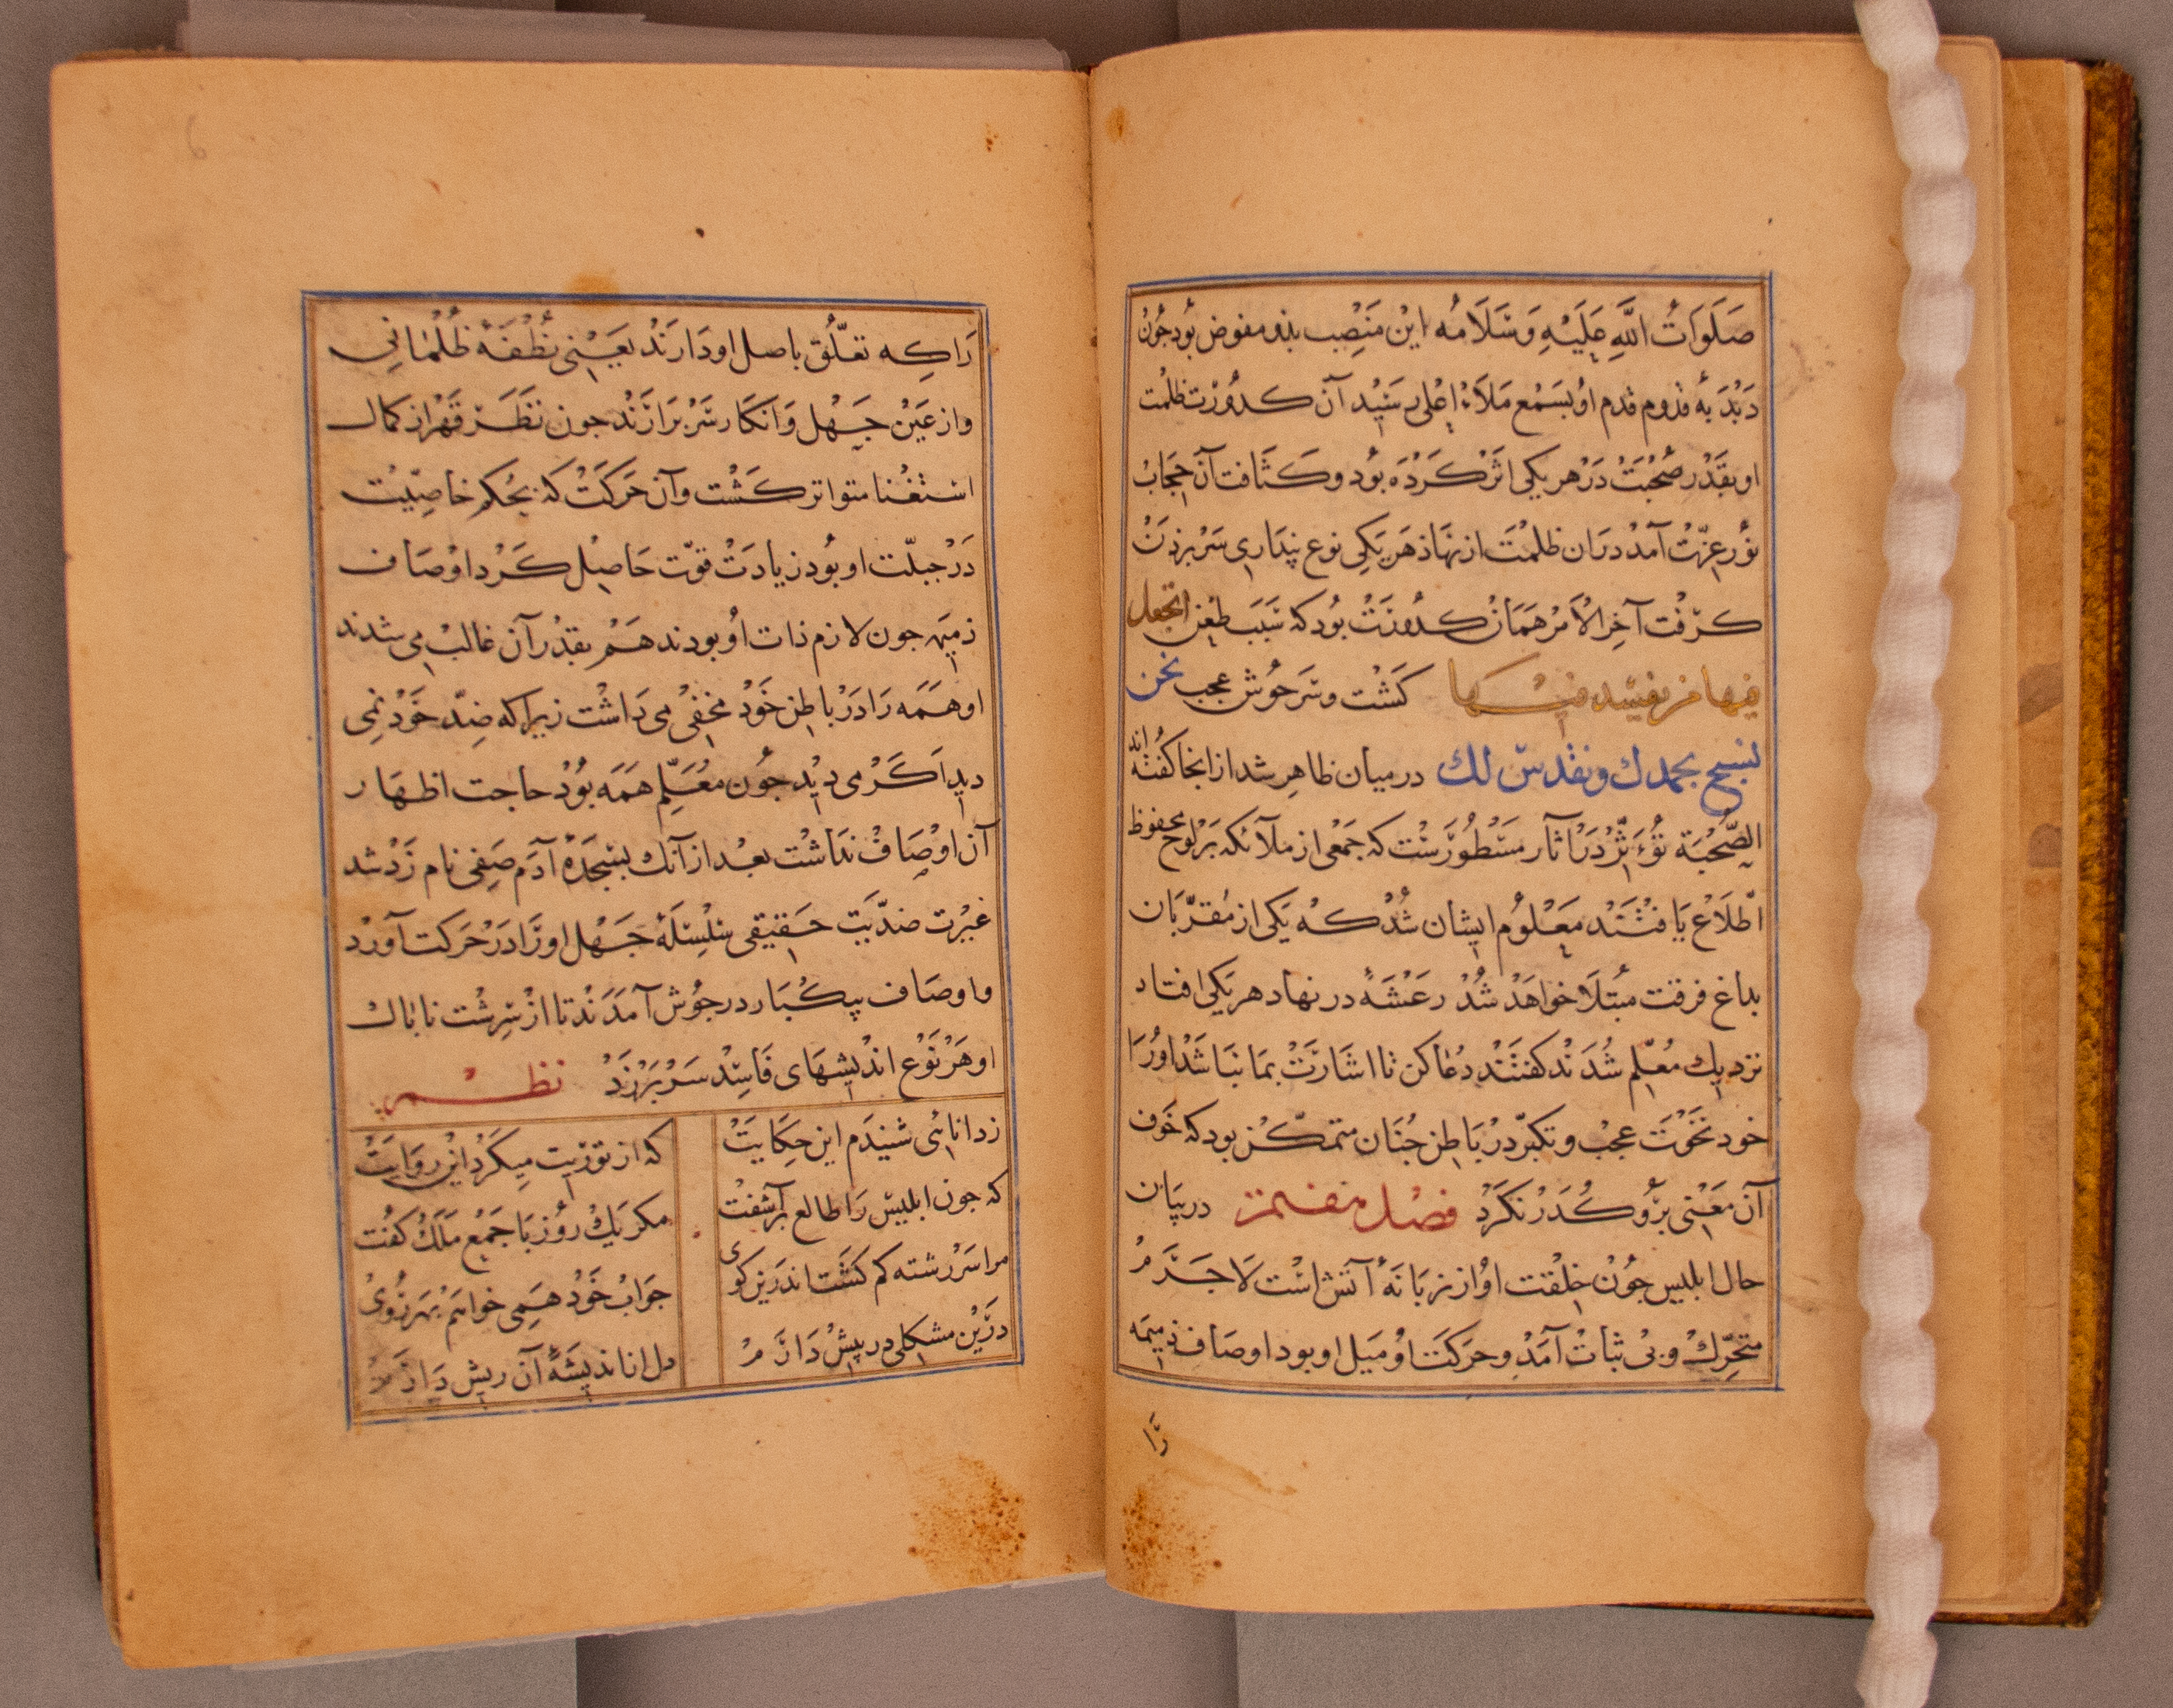 صَلَوَاتُ اللَّهِ عَلَيْهِ وَسَلَامُه این مَنصِب بذو مفوض بُود جُون
دَبْدَبهٔ قدوم قدم اوُ بسَمْع مَلَاءِ اعْلی رسَیْد آن کدُورَت ظلمت
او بقَدْر صُحْبَتْ دَرْ هر یکی اثرْ کَرْدَه بُود و کثَافت آن حِجَابْ
نوُر عِزّتْ آمَدْ درَان ظلمْتَ از نهَاذ هَر یَکِی نوع پنِدَاری سَرْ بر زدَنْ
کرفْت آخِرالْاَمرْ هَمَانْ کدُورَتْ بُود که سَبَب طعْن اتجعل
فیها من یفسد فیها کَشْت و سَر جُوش عجب نحن
نسبح بحمدك ونقدس لك در میان ظاهِر شد از انجا کُفته اند
الصُّحْبَة تؤَثّرْ دَرْ آثار مَسْطُورَسْت که جَمْعی از ملآئکه بَر لوح محفوظ
اطّلَاعْ یَافتَنَد معَلوُم ایشان شُدْ کهْ یَکی از مُقرّبَان
بداغ فرقت مبُتلَا خواهَدْ شُدْ رعَشَهٔ در نهاد هر یَکی افتاد
نزدیك مُعلّم شُدَنْد کفتَنْد دُعَا کن تا اشَارَتْ بمَا نبَاشَدْ اورُا
خود نخَوْتَ عجْب و تکبرّ درْ بَاطِن جُنَان متمکّن بود که خَوف
آن معَنْی برُو کُدَرْ نکرَدْ فصْل هفتم در بیَان
حال ابلیس جُونْ خِلْقت اوُ از زبَانهٔ آتش اسْت لَاجَرَمْ
متحَرِّكْ و بیْ ثبَاتْ آمَدْ و حرَکَتْ اوُ میْل او بود اوصَاف ذمیمَه
رَا
رَا کِه تعَلُّق باصل او دَارَنْد یعَنْی نُطْفَهٔ ظُلْمَانی
و از عَیْن جَهْل وَ انکَار سَرْ بَرَارَنْد جون نظَر قَهْر از کمال
استغْنا متواتر کَشْت و آن حَرکَتْ که بحُکم خاصِیّت
دَرْ جبلّت او بُود زیادَتْ قوّت حَاصِلْ کَرْد اوْصَاف
ذمیمه جون لازم ذات اوُ بودند هَمْ بقدْر آن غالبْ می شدند
او هَمَه رَا دَرْ باطِن خَوْد مخفیْ می دَاشْت زیرا که ضِدّ خَوْد نمی
دید اَکَرْ می دیْد جُون معَلِّم هَمَه بُوْد حاجت اظهَار
آن اوْصَافْ ندَاشْت بعْد از آنك بسَجْدَهٔ آدَم صَفی نام زَدْ شد
غیرْت ضدّیَت حَقیقی سلْسِلَهٔ جَهْل او رَا دَرْ حرَکت آورْد
و اوصَاف بیکُبَار در جوُش آمَدَنْد تا ازْ سِرِشْت ناپاك
او هَرْ نَوْع اندْیشهَای فَاسِدْ سَرْ بَرْزَدْ نظم
ز دانائی شنیدَم این حِکَایَتْ که از تورْیت میکَرْد اینْ روَایَتْ
که جون ابلیسْ رَا طالع بَرآشفتْ مکر یَكْ روُز بَا جَمْع مَلَكْ کفُت
مرا سَرْ رشته کم کَشْت اندَرین کوی جَوَابْ خَوْد هَمی خواهَمْ بهَر رُویْ
درَینْ مشکلی در پیشْ دَارَمْ دل از اندیشَهٔ آن ریش دَارَمْ